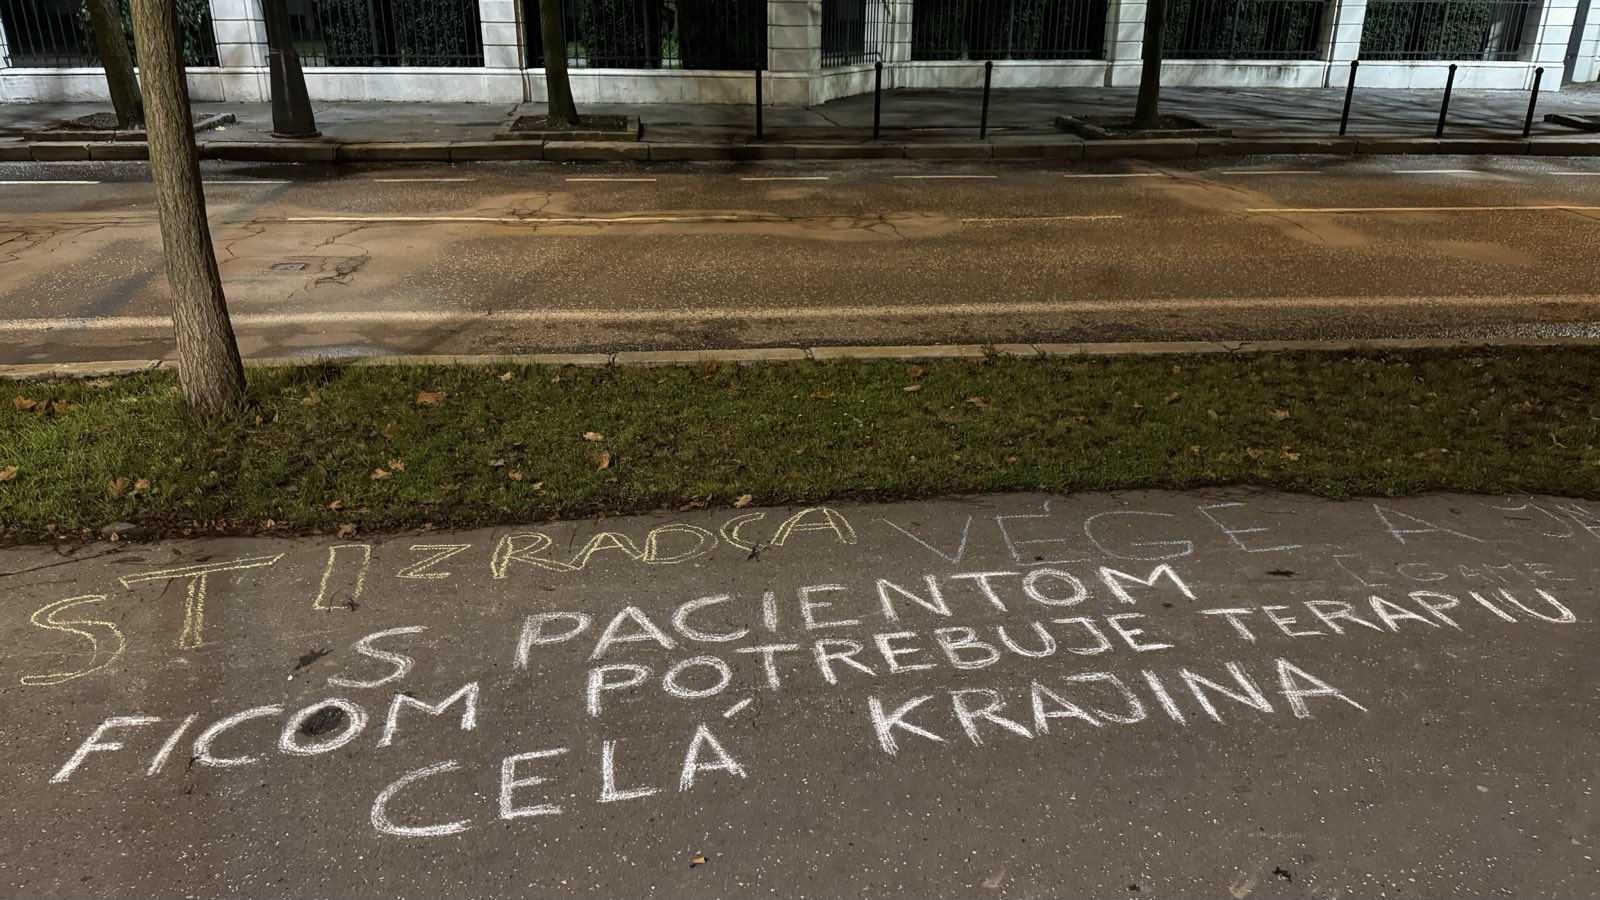 ST IZRADCA VÉGE A
S PACIENTOM
FICOM POTREBUJE TERAPIU
CELÁ KRAJINA